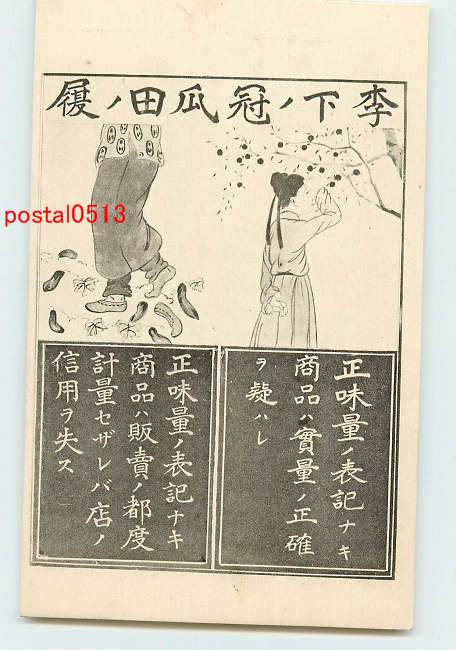 李下ノ冠瓜田ノ履
正味量ノ表記ナキ
商品ハ實量ノ正確
ヲ疑ハレ
正味量ノ表記ナキ
商品ハ販賣ノ都度
計量セザレバ店ノ
信用ヲ失ス
postal0513